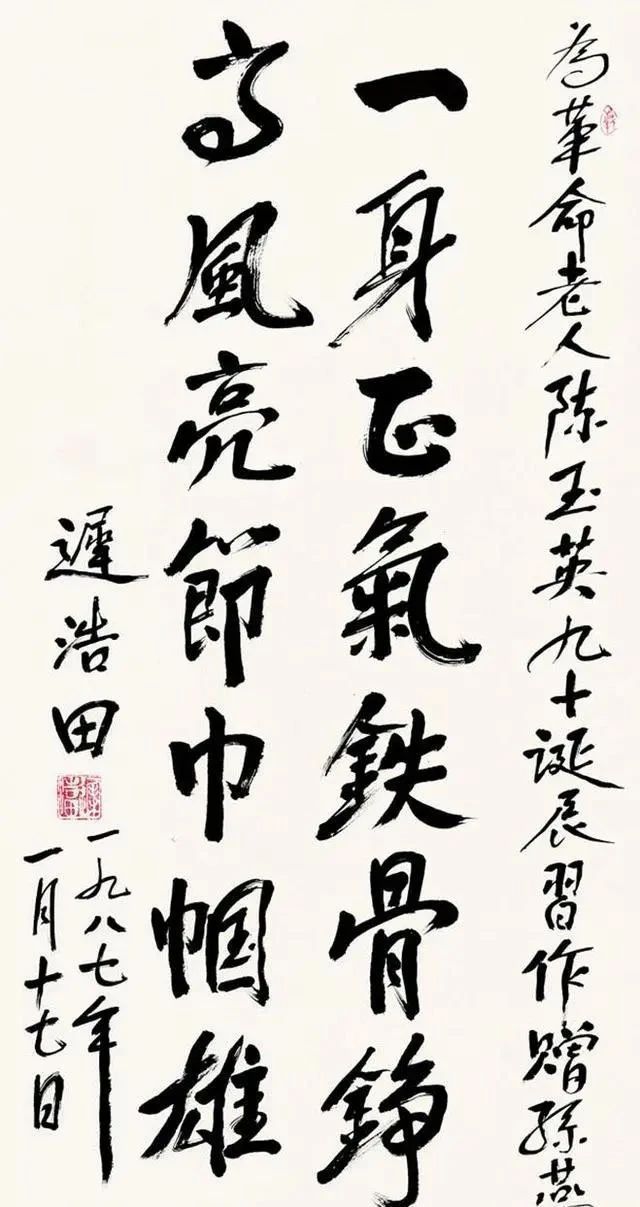 為革命老人陈玉英九十誕辰習作贈孫燕
一身正氣鉄骨錚
高風亮節巾帼雄
遲浩田
一九八七年
一月十七日